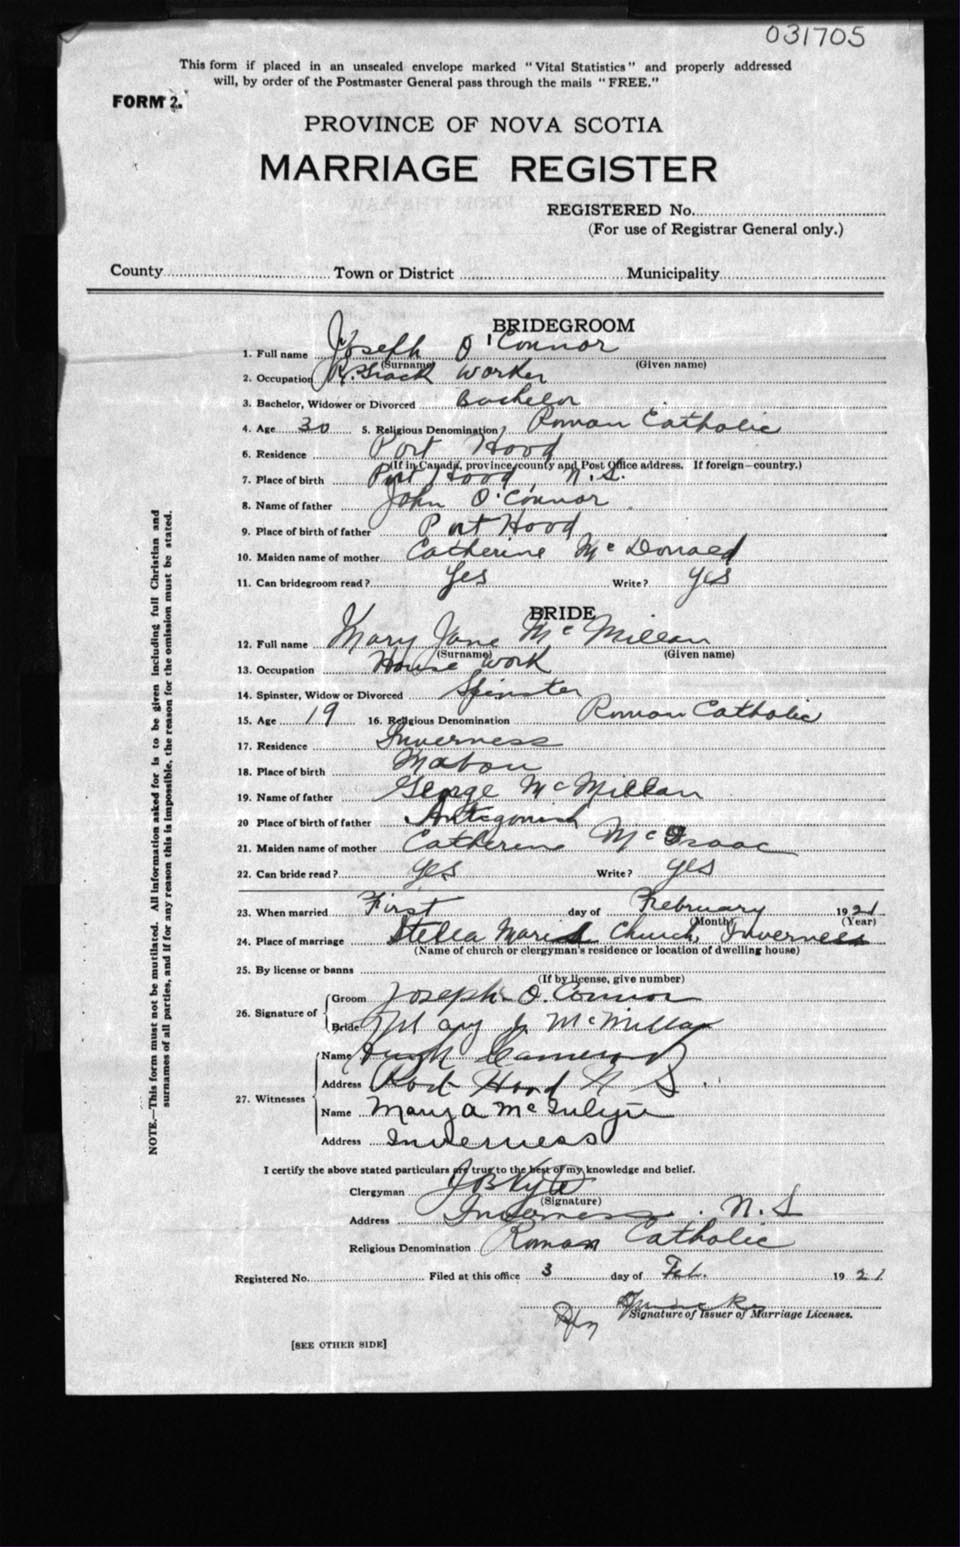 031705
This form if placed in an unsealed envelope marked "Vital Statistics" and properly addressed
will, by order of the Postmaster General pass through the mails "FREE."
FORM 2.
PROVINCE OF NOVA SCOTIA
MARRIAGE REGISTER
REGISTERED No.
(For use of Registrar General only.)
County Town or District Municipality
BRIDEGROOM
1. Full name Joseph O'Connor
(Surname) (Given name)
2. Occupation R. Track Worker
3. Bachelor, Widower or Divorced Bachelor
4. Age 30 5. Religious Denomination Roman Catholic
6. Residence Port Hood
(If in Canada, province, county and Post Office address. If foreign—country.)
7. Place of birth Port Hood, N.S.
8. Name of father John O'Connor
9. Place of birth of father Port Hood
10. Maiden name of mother Catherine McDonald
11. Can bridegroom read? Yes Write? yes
BRIDE
12. Full name Mary Jane McMillan
(Surname) (Given name)
13. Occupation House work
14. Spinster, Widow or Divorced Spinster
15. Age 19 16. Religious Denomination Roman Catholic
17. Residence Inverness
18. Place of birth Mabou
19. Name of father George McMillan
20 Place of birth of father Antigonish
21. Maiden name of mother Catherine McIsaac
22. Can bride read? yes Write? yes
23. When married First day of February 1921
(Month) (Year)
24. Place of marriage Stella Maris Church, Inverness
(Name of church or clergyman's residence or location of dwelling house)
25. By license or banns
(If by license, give number)
26. Signature of Groom Joseph O. Connor
Bride Mary J. McMillan
27. Witnesses Name Hugh Cameron
Address Port Hood N S.
Name Mary A McInlyre
Address Inverness
I certify the above stated particulars are true to the best of my knowledge and belief.
Clergyman J B Kyte
(Signature)
Address Inverness. N.S
Religious Denomination Roman Catholic
Registered No. Filed at this office 3 day of Feb. 1921
Signature of Issuer of Marriage Licenses.
[SEE OTHER SIDE]
NOTE.—This form must not be mutilated. All information asked for is to be given including full Christian and
surnames of all parties, and if for any reason this is impossible, the reason for the omission must be stated.